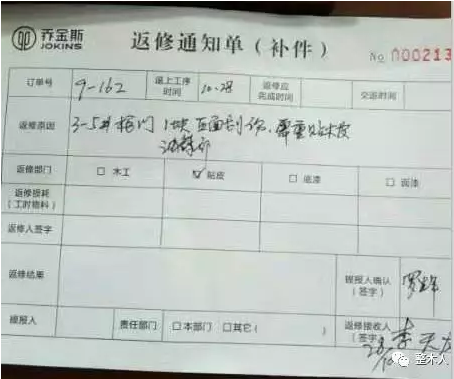 乔金斯
JOKINS
返修通知单(补件)
No 000213
订单号 9-162 返上工序时间 10.28 返修应完成时间 交返时间
返修原因 3-5# 柜门 1块 面划伤,需重贴木皮
返修部门 □木工 ☑贴皮 □底漆 □面漆
返修损耗(工时物料)
返修人签字
返修结果 提报人确认(签字)
提报人 责任部门 □本部门 □其它( ) 返修接收人(签字) 李
整木人